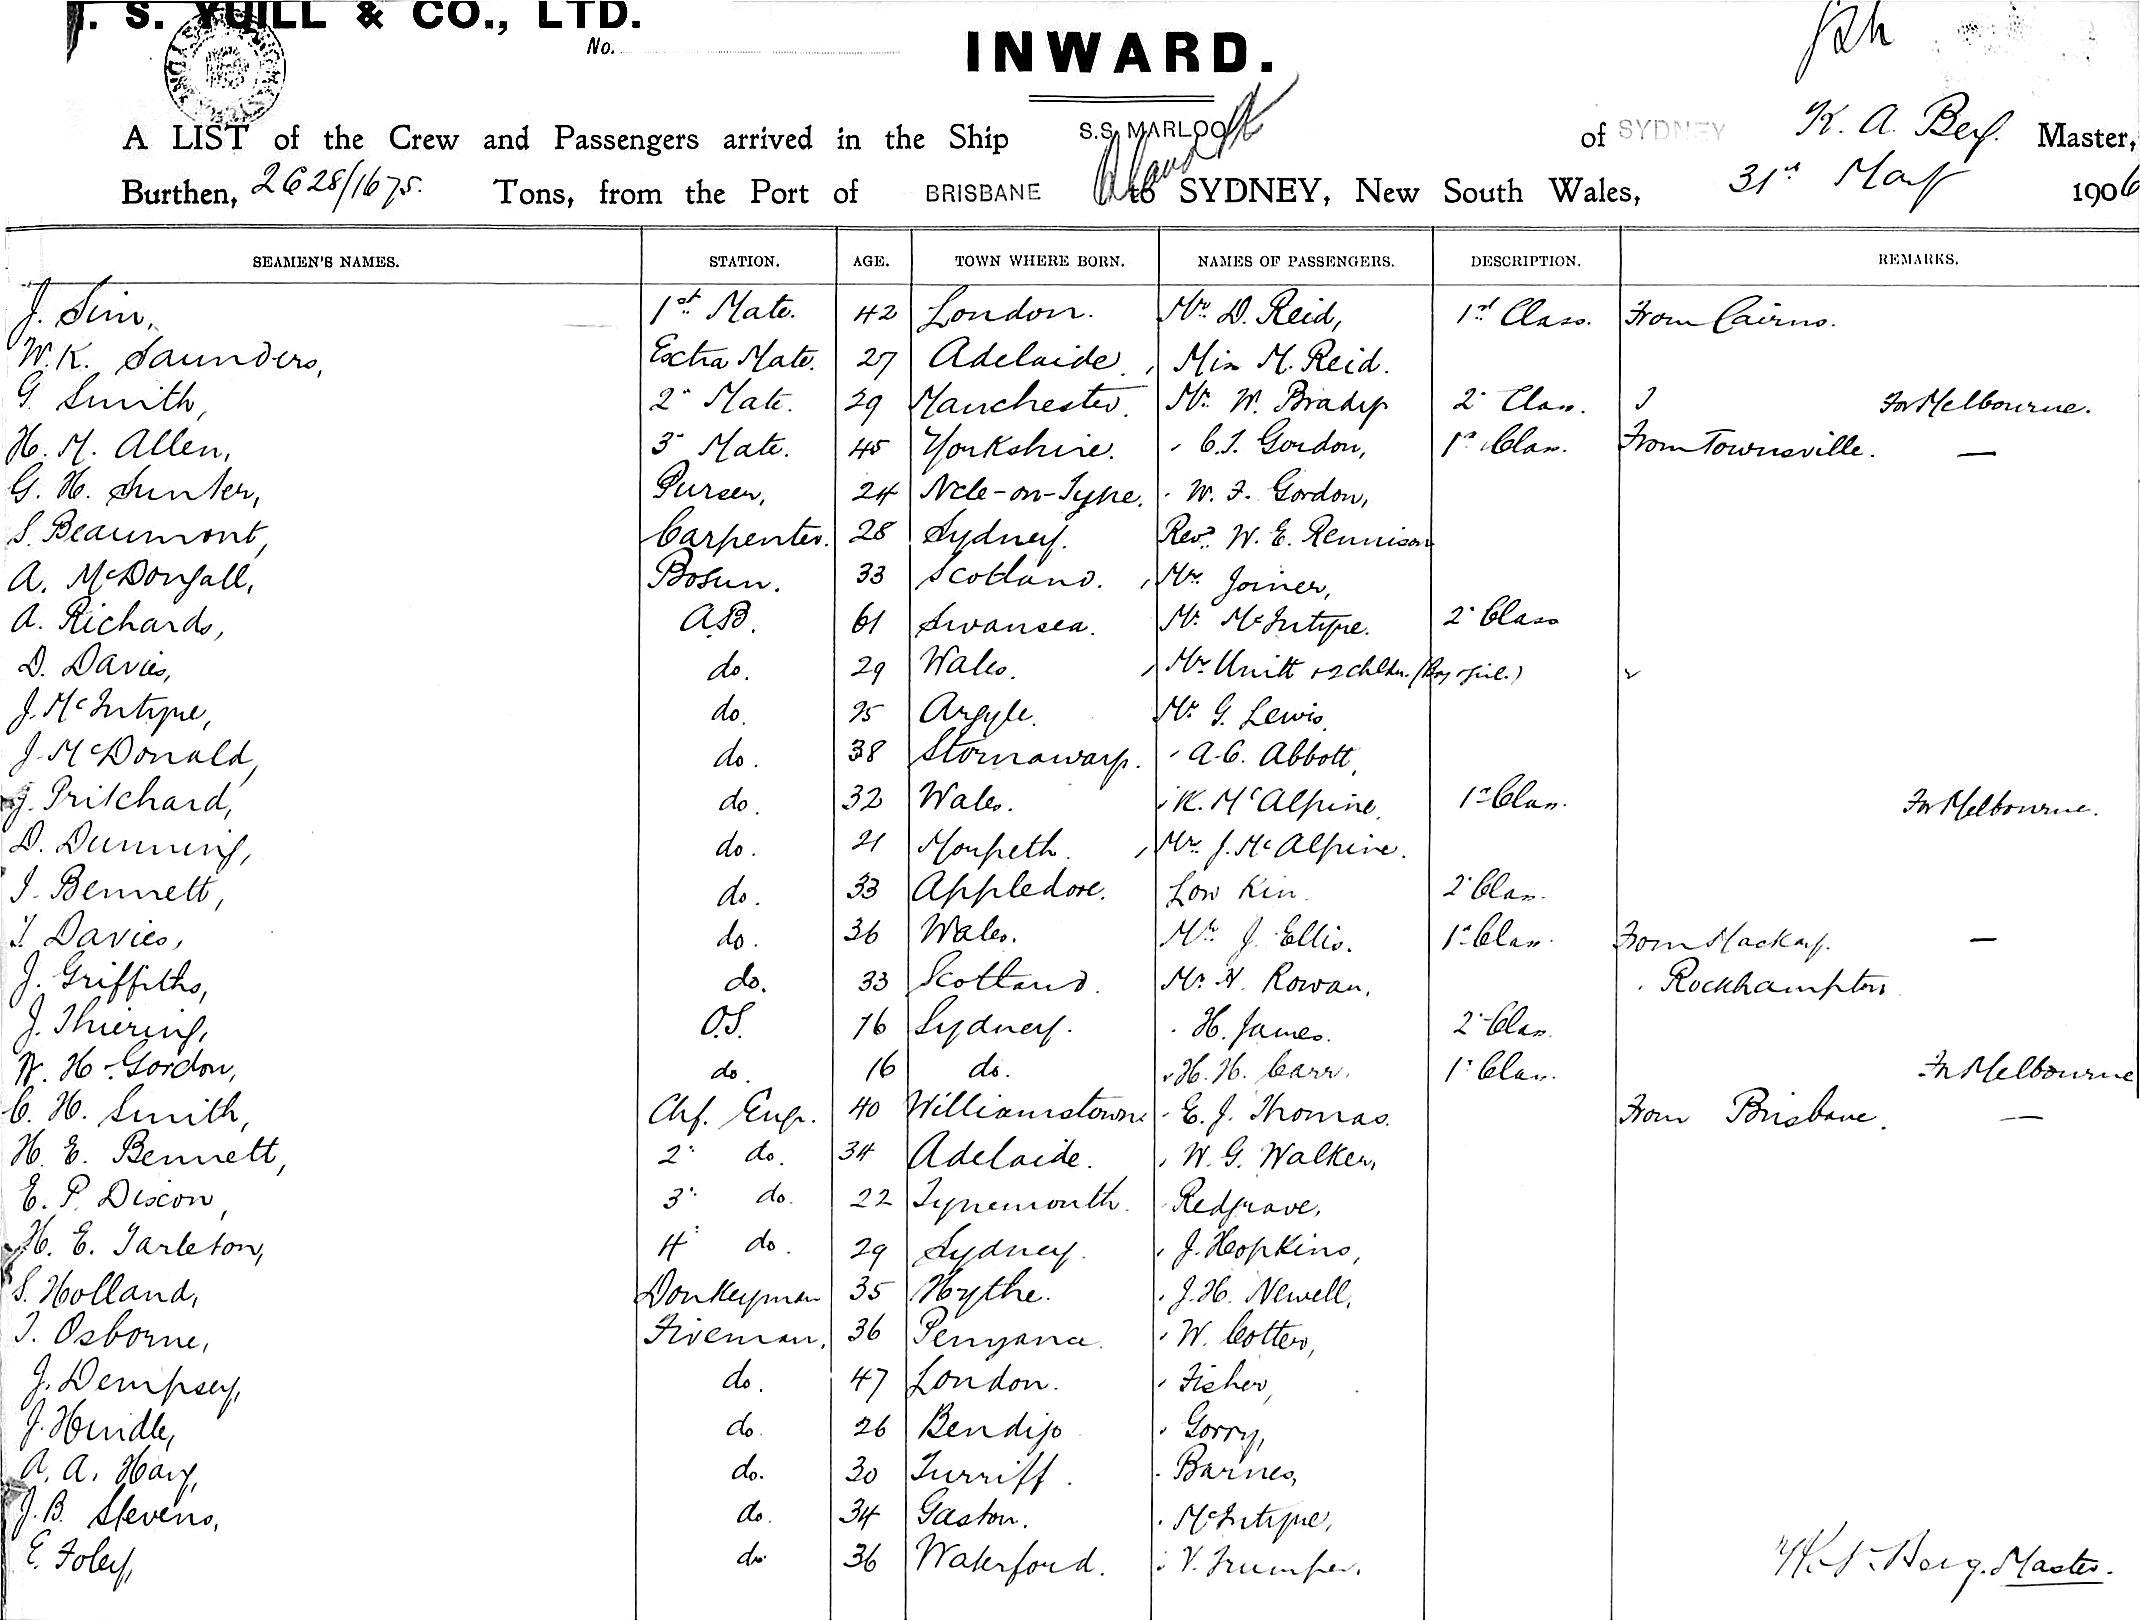 J. S. YUILL & CO., LTD.
No.
INWARD.
A LIST of the Crew and Passengers arrived in the Ship S.S. MARLOO of SYDNEY K. A. Berg. Master,
Burthen, 2628/1675. Tons, from the Port of BRISBANE to SYDNEY, New South Wales, 31st May 1906
SEAMEN'S NAMES. STATION. AGE. TOWN WHERE BORN. NAMES OF PASSENGERS. DESCRIPTION. REMARKS.
J. Sim, 1st Mate. 42 London. Mr. D. Reid, 1st Class. From Cairns.
W. K. Saunders, Extra Mate. 27 Adelaide. Miss M. Reid.
G. Smith, 2d Mate. 29 Manchester. Mr. W. Brady 2d Class. For Melbourne.
H. M. Allen, 3d Mate. 45 Yorkshire. " C. J. Gordon, 1st Class. From Townsville. —
G. H. Sunter, Purser, 24 Ncle-on-Tyne. " W. F. Gordon,
S. Beaumont, Carpenter. 28 Sydney. Revd. W. E. Rennison
A. McDongall, Bosun. 33 Scotland. Mrs. Joiner,
A. Richards, A.B. 61 Swansea. Mr. McIntyre. 2d Class
D. Davies, do. 29 Wales. Mrs. Unitt + 2 chldn. (Boy & girl.)
J. McIntyre, do. 25 Argyle. Mr. G. Lewis.
J. McDonald, do. 38 Stornaway. " A. C. Abbott,
J. Pritchard, do. 32 Wales. " K. McAlpine. 1st Class. For Melbourne.
D. Dunning, do. 21 Morpeth. Mrs. J. McAlpine.
J. Bennett, do. 33 Appledore. Low Kin. 2d Class.
T. Davies, do. 36 Wales. Mrs. J. Ellis. 1st Class. From Mackay. —
J. Griffiths, do. 33 Scotland. Mr. H. Rowan, " Rockhampton
J. Thiering, O.S. 16 Sydney. " H. James. 2d Class.
W. H. Gordon, do. 16 do. " H. H. Carr. 1st Class. For Melbourne
C. H. Smith, Chf. Engr. 40 Williamstown " E. J. Thomas. From Brisbane. —
H. E. Bennett, 2d do. 34 Adelaide. " W. G. Walker,
E. P. Dixon, 3d do. 22 Tynemouth. " Redgrave,
H. E. Tarleton, 4th do. 29 Sydney. " J. Hopkins,
S. Holland, Donkeyman 35 Hythe. " J. H. Newell,
T. Osborne, Fireman, 36 " W. Cotter,
J. Dempsey, do. 47 London. " Fisher,
J. Hindle, do. 26 Bendigo " Gorry,
A. A. Hay, do. 30 Turriff. " Barnes,
J. B. Stevens, do. 34 Gaston. " McIntyre,
E. Foley, do. 36 Waterford. " V. Trumper.
K. A. Berg. Master.